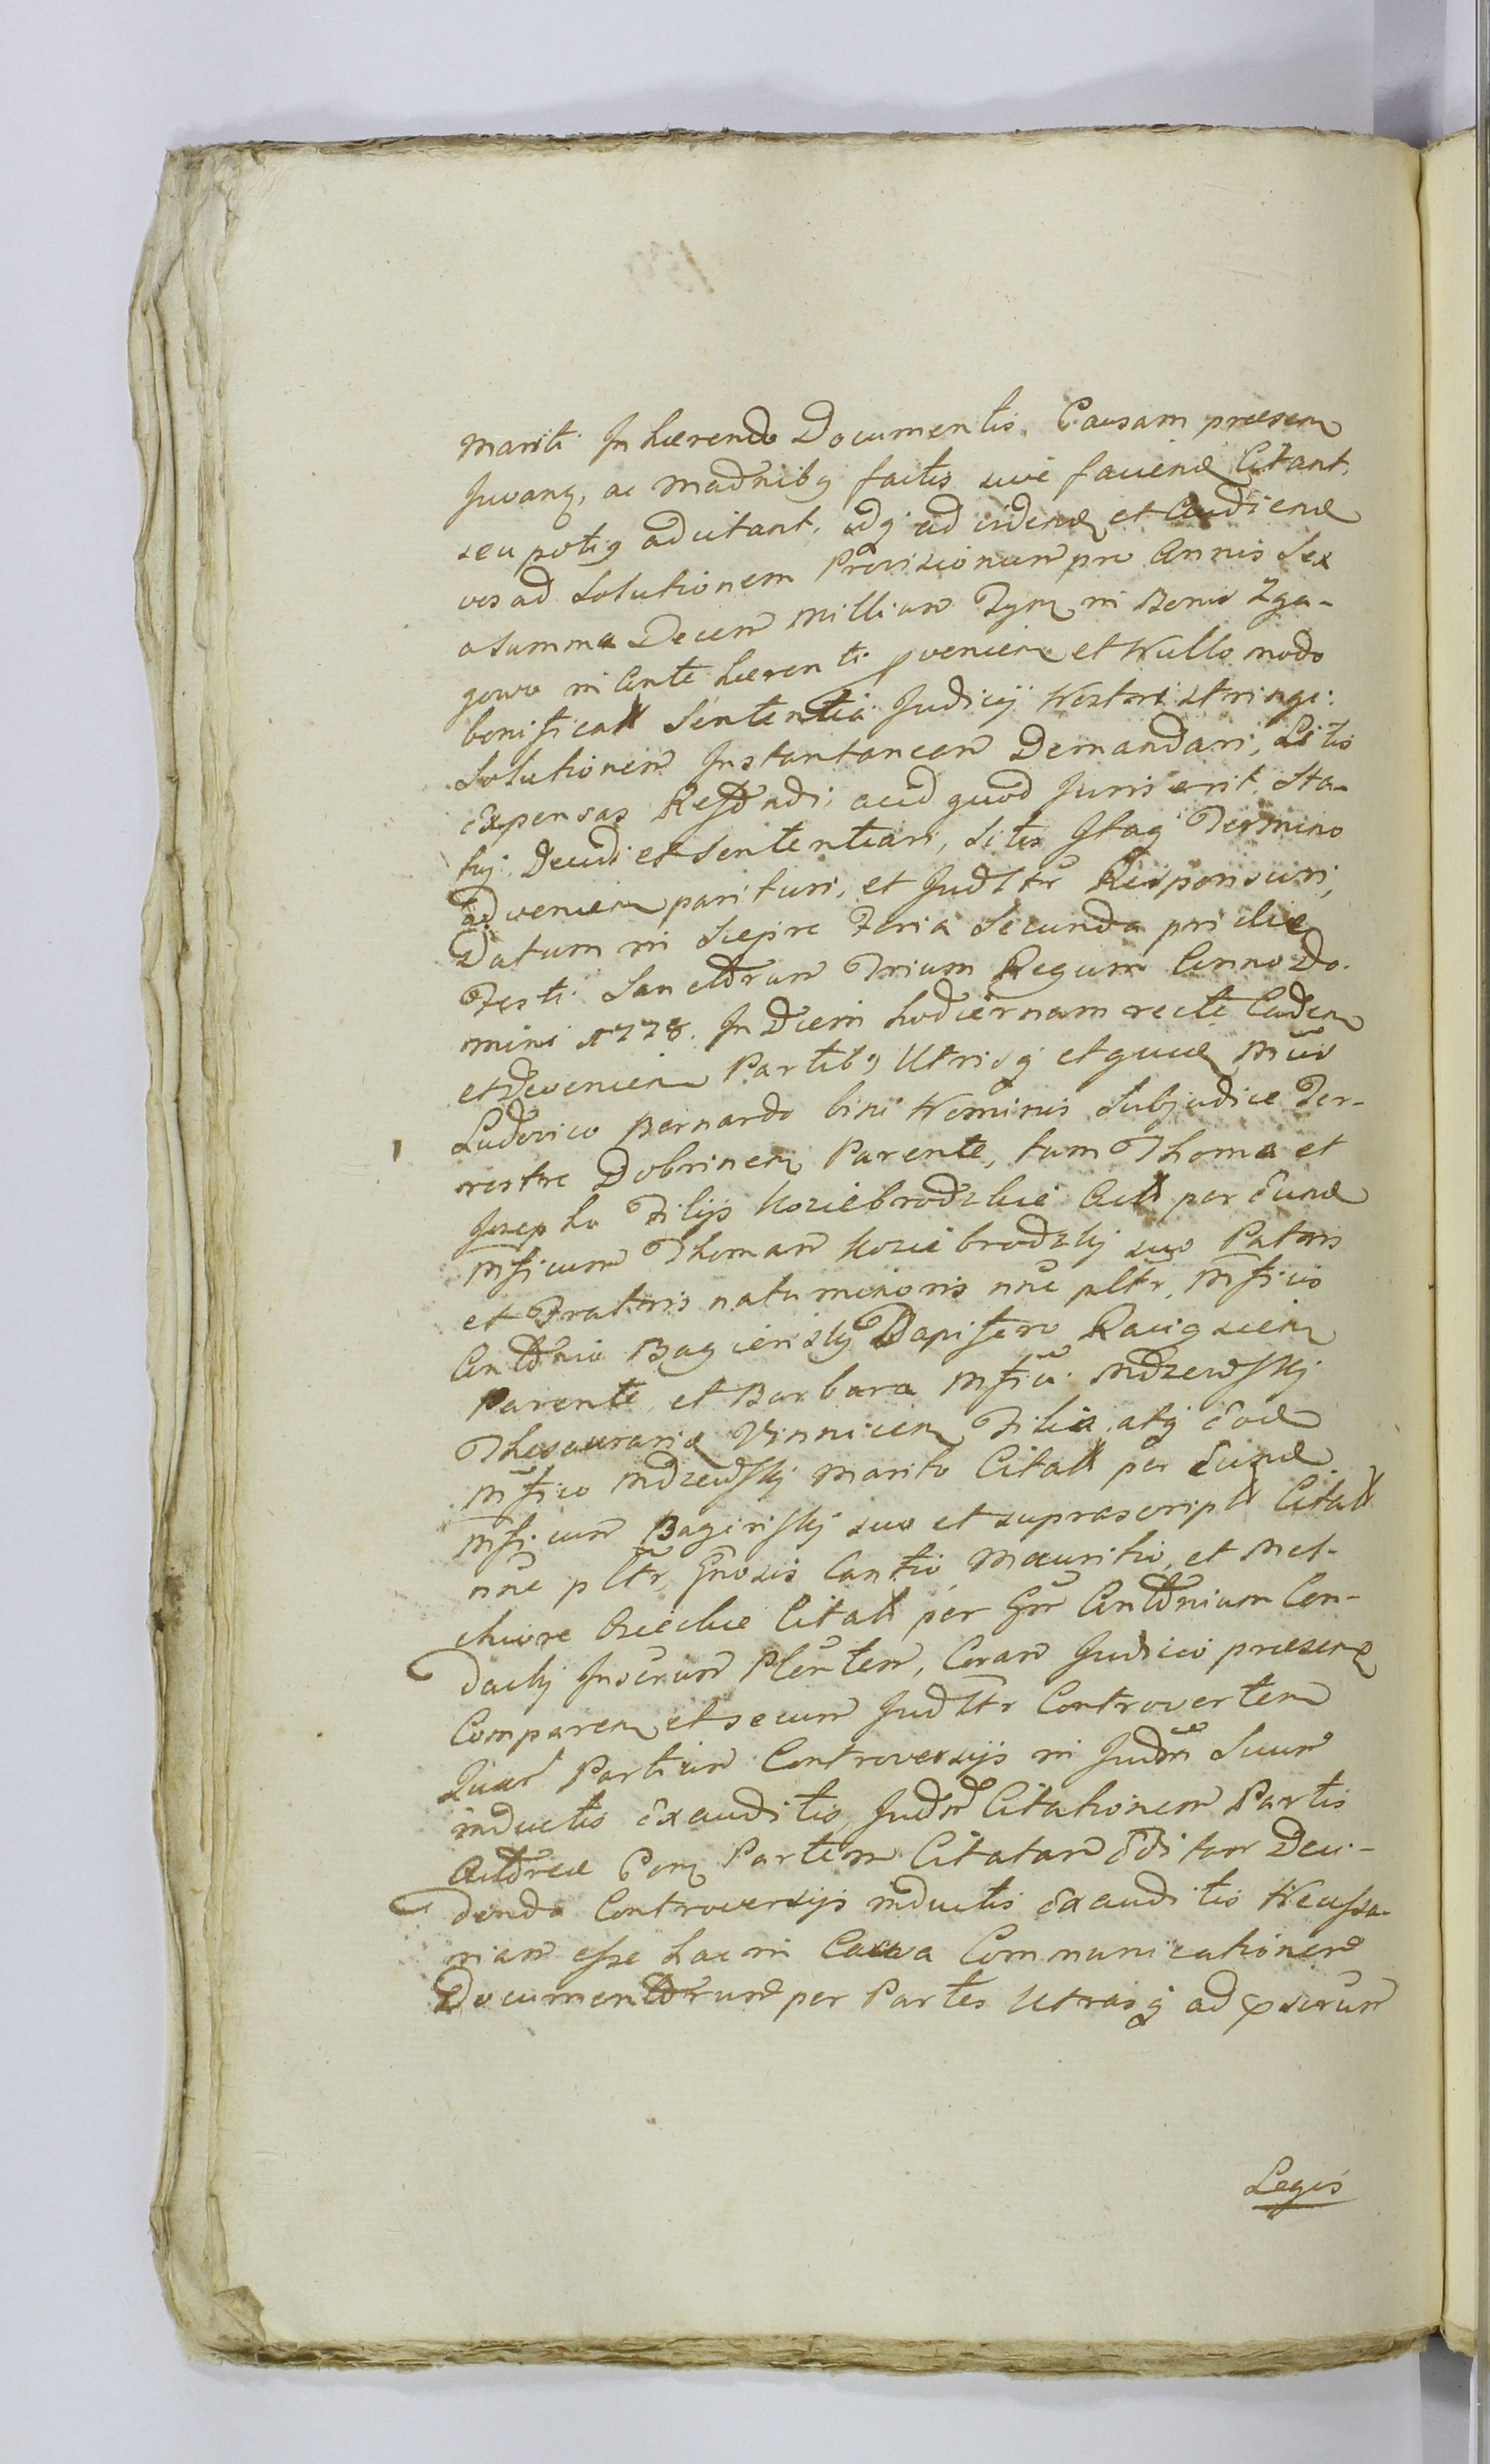 Mariti Inhærendo Documentis. Causam præsen
Juvanq, ac madnibq factis sive faviend Citant.
seu potiq adcitant. adq ad vidend et Audiend
vos ad Solutionem Provisionum pro Annis Sex
a Summa Decem Millium Tynf in Bonis Zga-
gowo in Ante hærenti pvenien et Nullo modo
bonificatt Sententia Judicij Nostri stringi:
Solutionem Instantaneam Demandari, Litis
Expensas Refdndi, aliud quod Juris erit. Sta-
tuj. Decidi et Sententiari, Sitis Itaq Termino
advenien parituri, et Judltr Responsuri,
Datum in Sieprc Feria Secunda pridie
Festi Sanctorum Trium Regum Anno Do-
mini 1778. In Diem hodiernam recte Caden
et Devenien Partibq Utrisq et quid Mfcis
Ludovico Bernardo bini Nominis Subjudice Ter-
restre Dobrinen Parente, tum Thoma et
Josepho Filijs Koziebrodzkie Actt per Eund
Mficum Thomam Koziebrodzkj suo Patris
et Fratris natu minoris nne pltr, Mfico
Antonio Bagienskj Dapifero Raciqzien
Parente, et Barbara Mfici Mdzewskj
Thesaurarij Vinnicen Filia. atq Eod
Mfico Mdzewskj Marito Citatt per Eund
Mficum Baginskj suo et suprascriptt Citatt
nne pltr, Gnosis Cantio, Mauritio, et Mel-
chiore Osieckie Citatt per Gnr Antonium Con-
dackj Inscrum Plentem, Coram Judicio præsend
Comparen et secum Judltr Controvertem
Quar Partium Controversijs in Judm Suum
inductis Exauditis, Judm Citationem Partis
Actoreæ Conq Partem Citatam Editam Deci-
dendo Controversijs inductis Exauditis Necessa-
riam esse hac in Causa Communicationem
Documentorum per Partes Utrasq ad
Legis